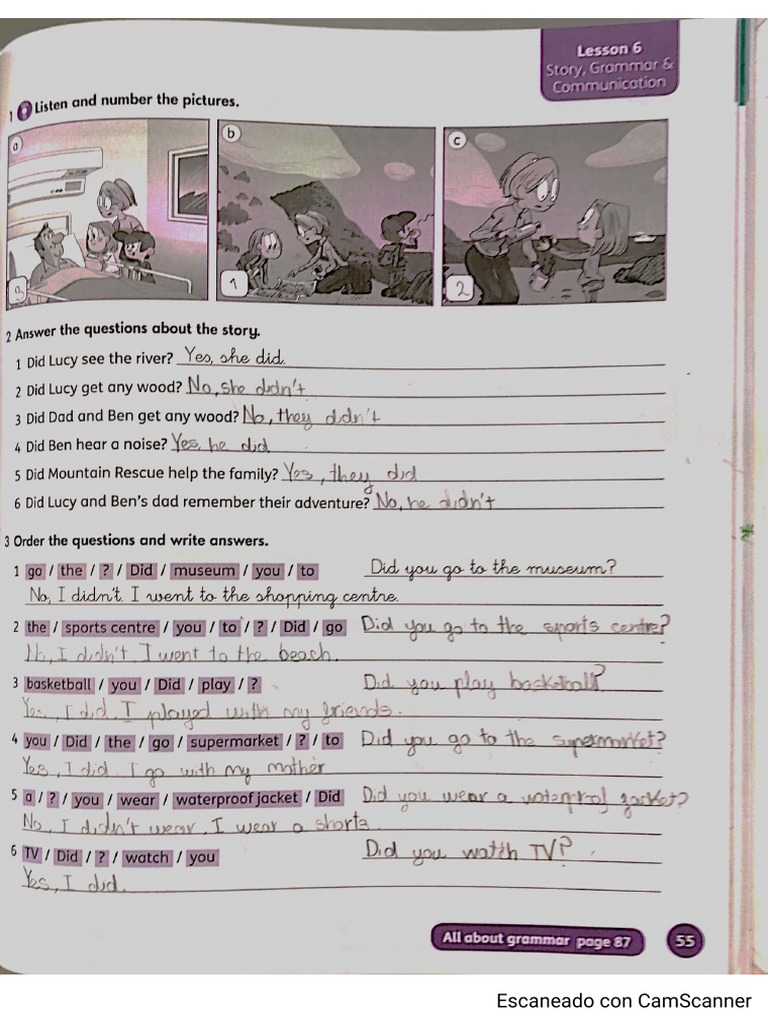 Lesson 6
Story, Grammar &
Communication
1 Listen and number the pictures.
a
b
c
3
1
2
2 Answer the questions about the story.
1 Did Lucy see the river? Yes, she did.
2 Did Lucy get any wood? No, she didn't
3 Did Dad and Ben get any wood? No, they didn't
4 Did Ben hear a noise? Yes, he did
5 Did Mountain Rescue help the family? Yes, they did
6 Did Lucy and Ben's dad remember their adventure? No, he didn't
3 Order the questions and write answers.
1 go / the / ? / Did / museum / you / to Did you go to the museum?
No, I didn't. I went to the shopping centre.
2 the / sports centre / you / to / ? / Did / go Did you go to the sports centre?
No, I didn't I went to the beach.
3 basketball / you / Did / play / ? Did you play basketball?
Yes, I did. I played with my friends.
4 you / Did / the / go / supermarket / ? / to Did you go to the supermarket?
Yes, I did. I go with my mother
5 a / ? / you / wear / waterproof jacket / Did Did you wear a waterprof jacket?
No, I didn't wear, I wear a shorts.
6 TV / Did / ? / watch / you Did you watch TV?
Yes, I did.
All about grammar page 87
55
Escaneado con CamScanner